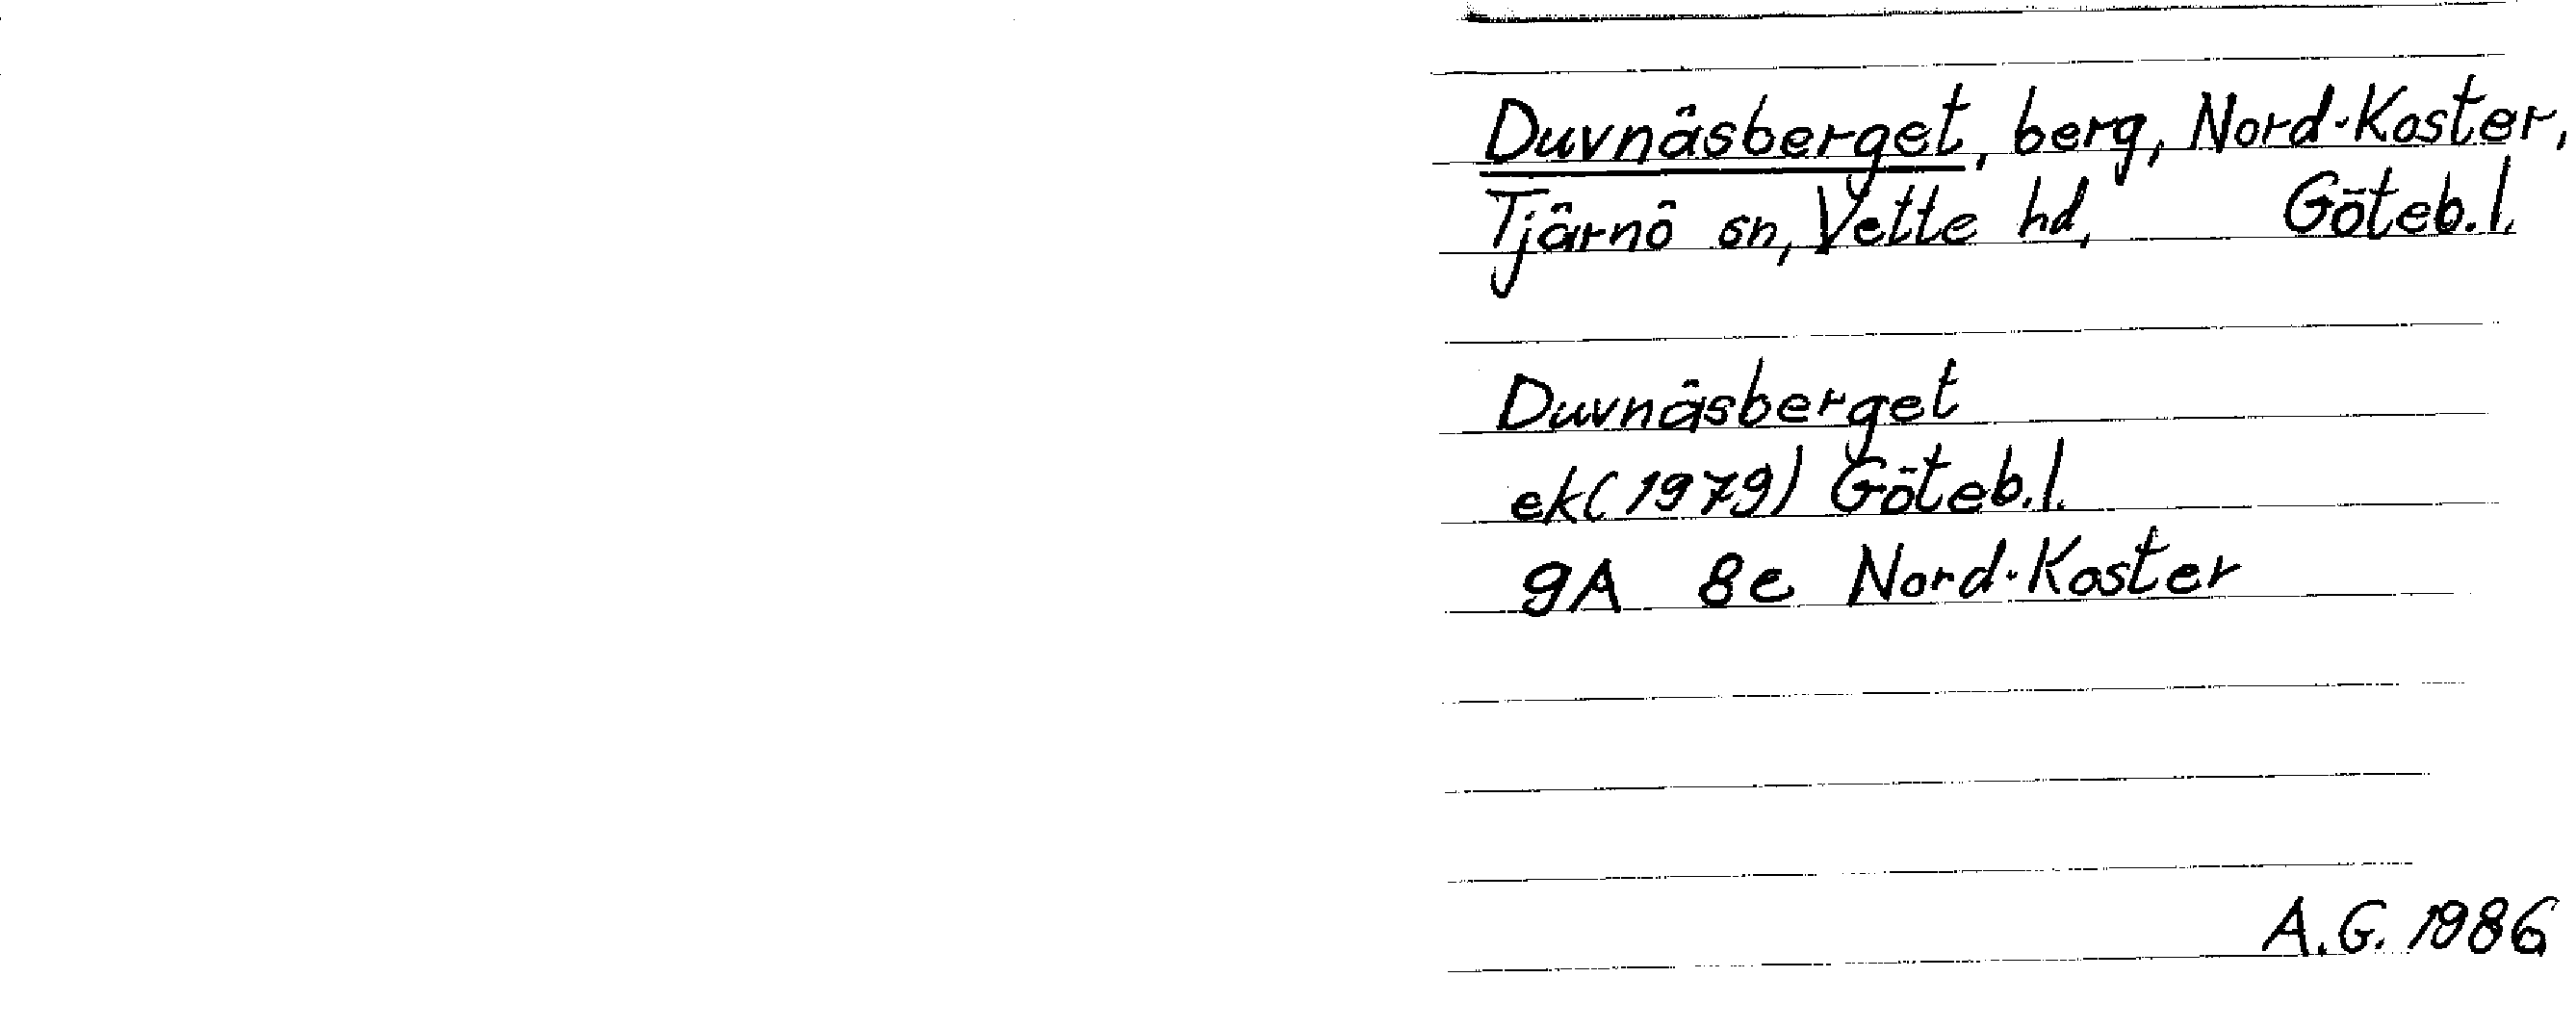 Duvnäsberget, berg, Nord-Koster,
Tjärnö sn, Vette hd, Göteb.l.
Duvnäsberget
ek(1979) Göteb.l.
9A 8e Nord-Koster
A.G. 1986